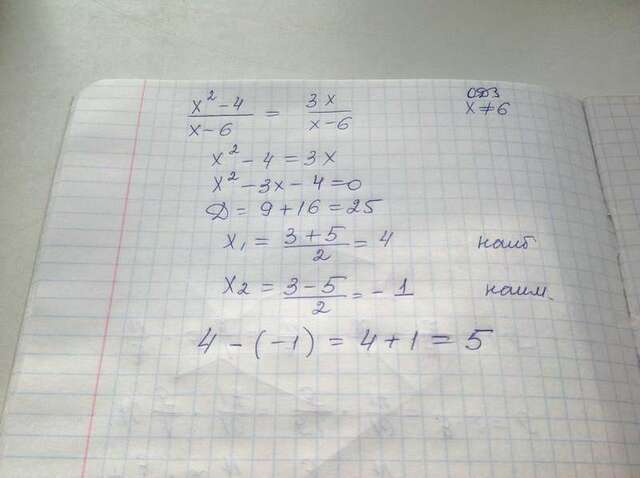 ОДЗ
(x² - 4)/(x - 6) = 3x/(x - 6) x ≠ 6
x² - 4 = 3x
x² - 3x - 4 = 0
Д = 9 + 16 = 25
x₁ = (3 + 5)/2 = 4 наиб
x₂ = (3 - 5)/2 = - 1 наим.
4 - (-1) = 4 + 1 = 5